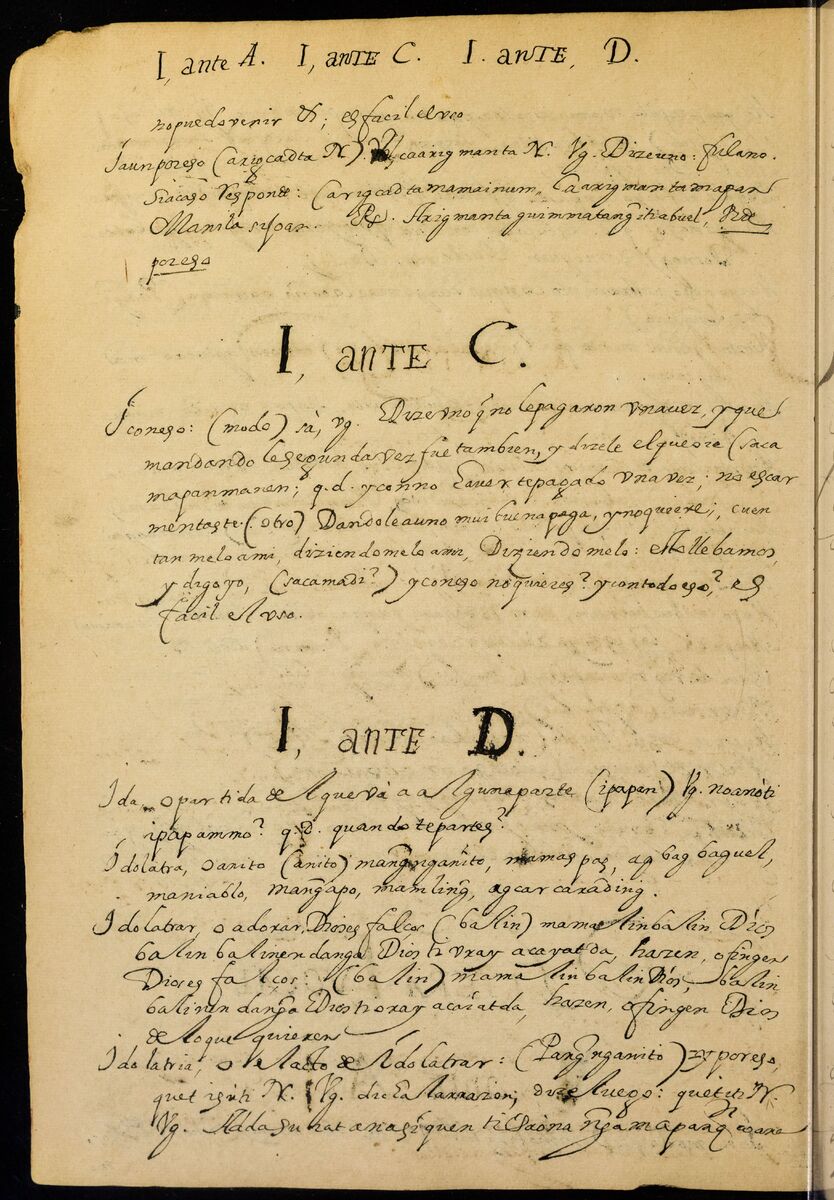 I, ante A. I, ante C. I. ante, D.
no puedo venir &; es facil el uso
I aun por eso (arigcadta N) caarigmanta N. Vg. Dize uno: fulano.
si acaso Responde: (arigcadta mamainum, caarigmanta mapan
Manila si Joan. Rs. Arigmanta quimmatang iti abuel,
por eso
I, ante C.
I con eso: (modo) sà, vg. Dize uno q no le pagaron una vez, y que
mandando le segunda vez fue tambien, y dizele el que oie (saca
mapanmanen; q.d. y con no haverte pagado una vez; no escar
mentaste (otro) Dandole a uno mui buena paga, y no quiere;, cuen
tanmelo a mi, diziendomelo a mi, Diziendomelo:
y digo yo, (sacamadi?) y con eso no quieres? y con todo eso?, es
facil el uso.
I, ante D.
Ida, o partida de el que và a alguna parte (ipapan) Vg. no anoti
ipapammo? q.d. quando te partes?
Idolatra, o anito (anito) mangnganito, mamaspas, agbagbaguel,
maniablo, mangapo, mamling, agcarcarading.
Idolatrar, o adorar, Dioses falsos (balin) mamalinbalin Dios
balinbalinen danga Dios ti uray acayat da, hazen, o fingen
Dioses falços: (balin) mamalinbalin Dios, balin
balinen danga Dios ti oray acaiatda, hazen, o fingen Dios
de lo que quieren
Idolatria, o el acto de Idolatrar: (Pangnganito) y por eso,
quet isuti N. Vg. dicha la rrazon, dize luego: quet iti N.
Vg. Adda sursurat